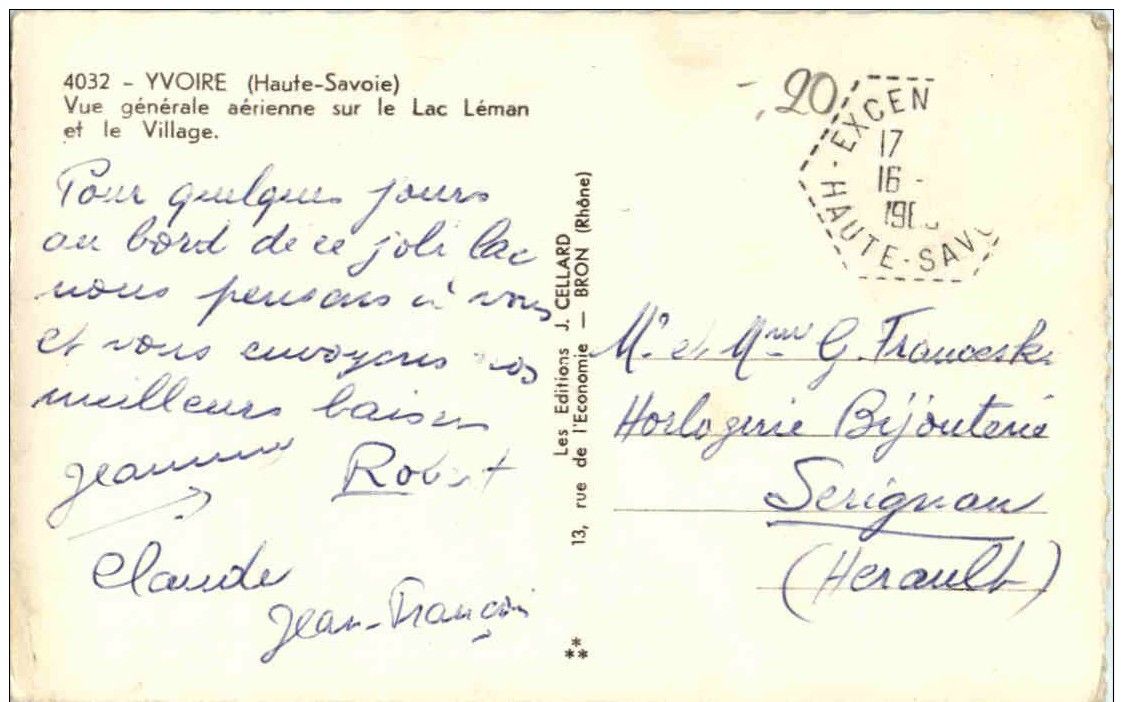 4032 - YVOIRE (Haute-Savoie)
Vue générale aérienne sur le Lac Léman
et le Village.
Pour quelques jours
au bord de ce joli lac
nous pensons à vous
et vous envoyons nos
meilleurs baisers
Jeannine Robert
Claude
Jean-François
Les Editions J. CELLARD
13, rue de l'Economie — BRON (Rhône)
20
EXCEN
17
16 -
HAUTE-SAVO
Mr et Mme G. Franceski
Horlogerie Bijouterie
Serignan
(Herault)